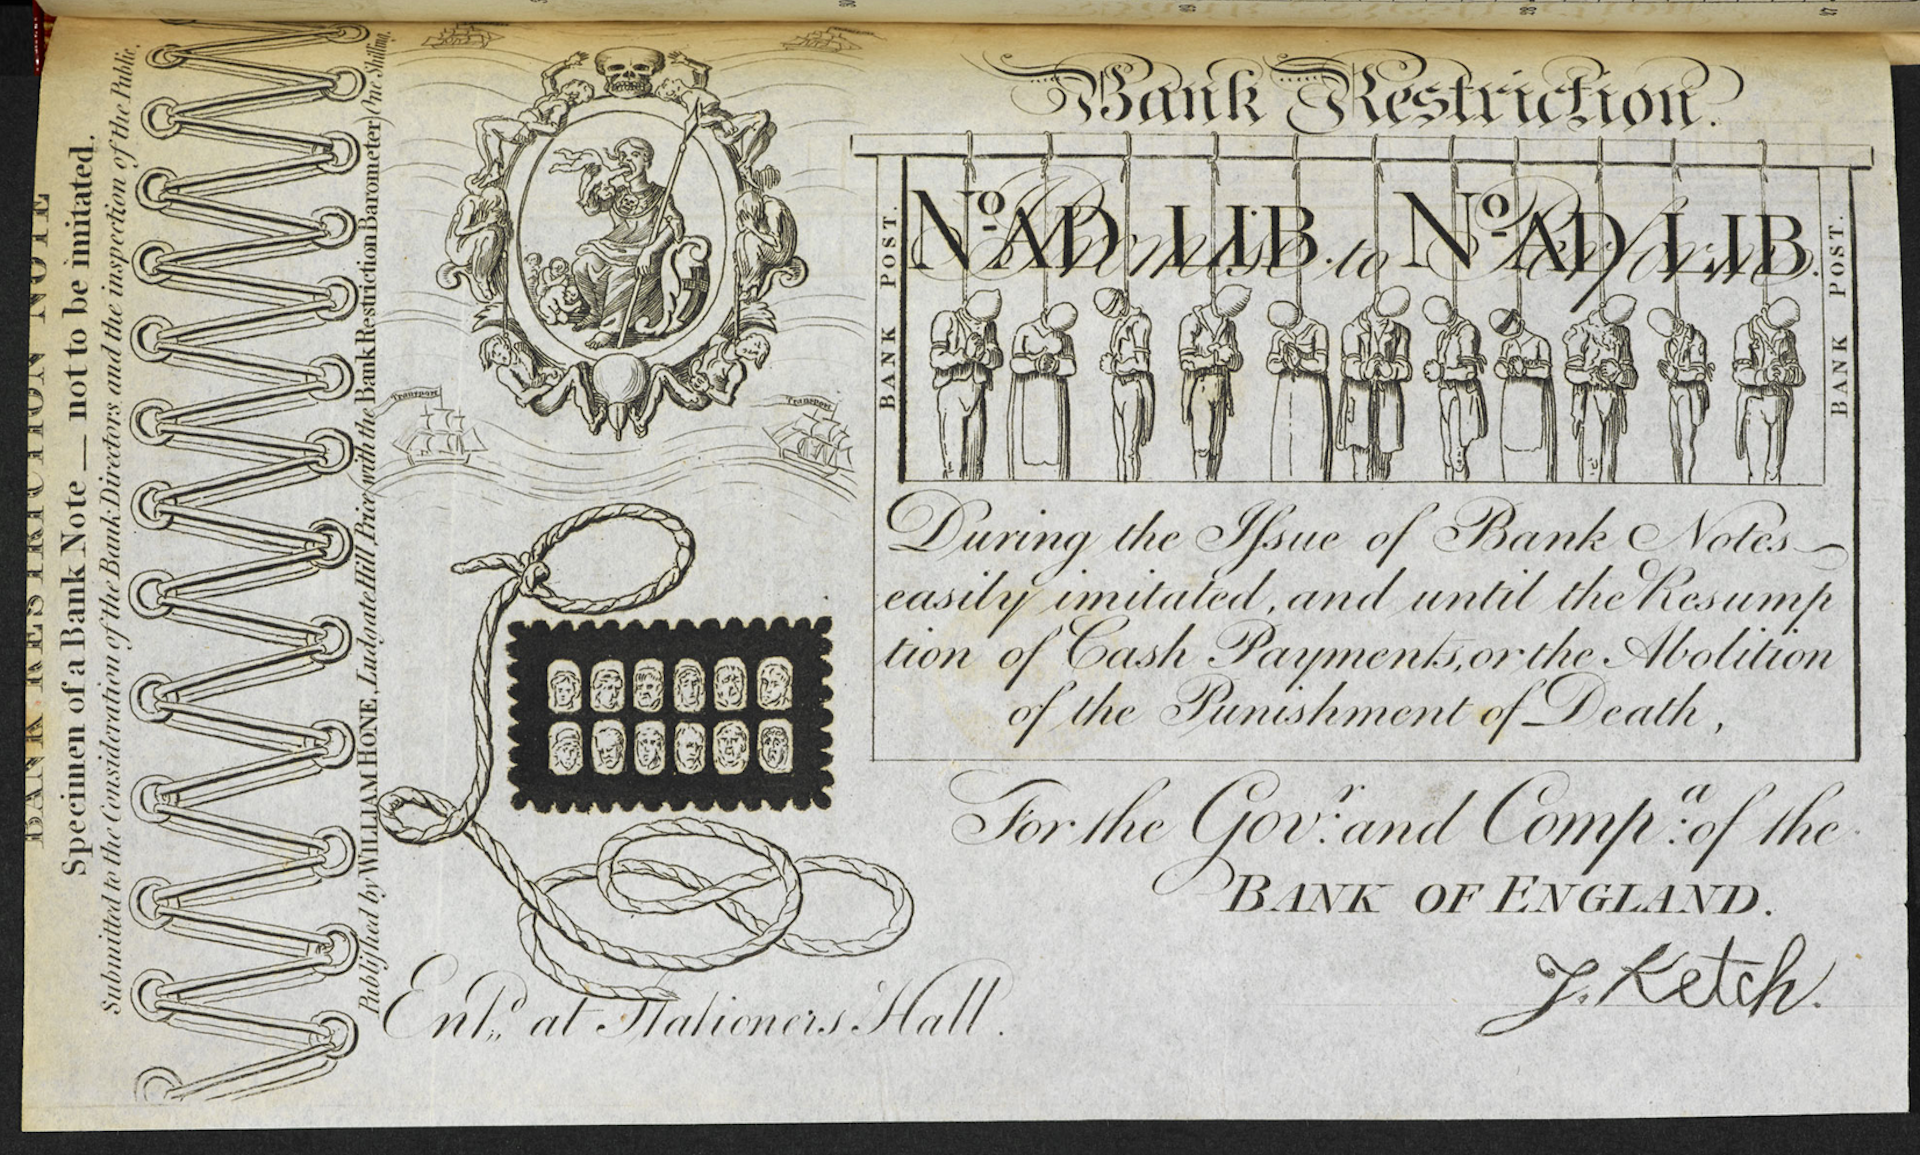 BANK RESTRICTION NOTE
Specimen of a Bank Note — not to be imitated.
Submitted to the Consideration of the Bank Directors and the inspection of the Public.
Published by WILLIAM HONE, Ludgate Hill Price (with the Bank Restriction Barometer) One Shilling.
Transport
Transport
Bank Restriction.
BANK POST.
No. AD. LIB.
I Promise to Perform
No. AD. LIB.
BANK POST.
During the Issue of Bank Notes
easily imitated, and until the Resump
tion of Cash Payments, or the Abolition
of the Punishment of Death,
For the Govr. and Compa. of the
BANK OF ENGLAND.
J. Ketch.
Entd. at Stationers' Hall.